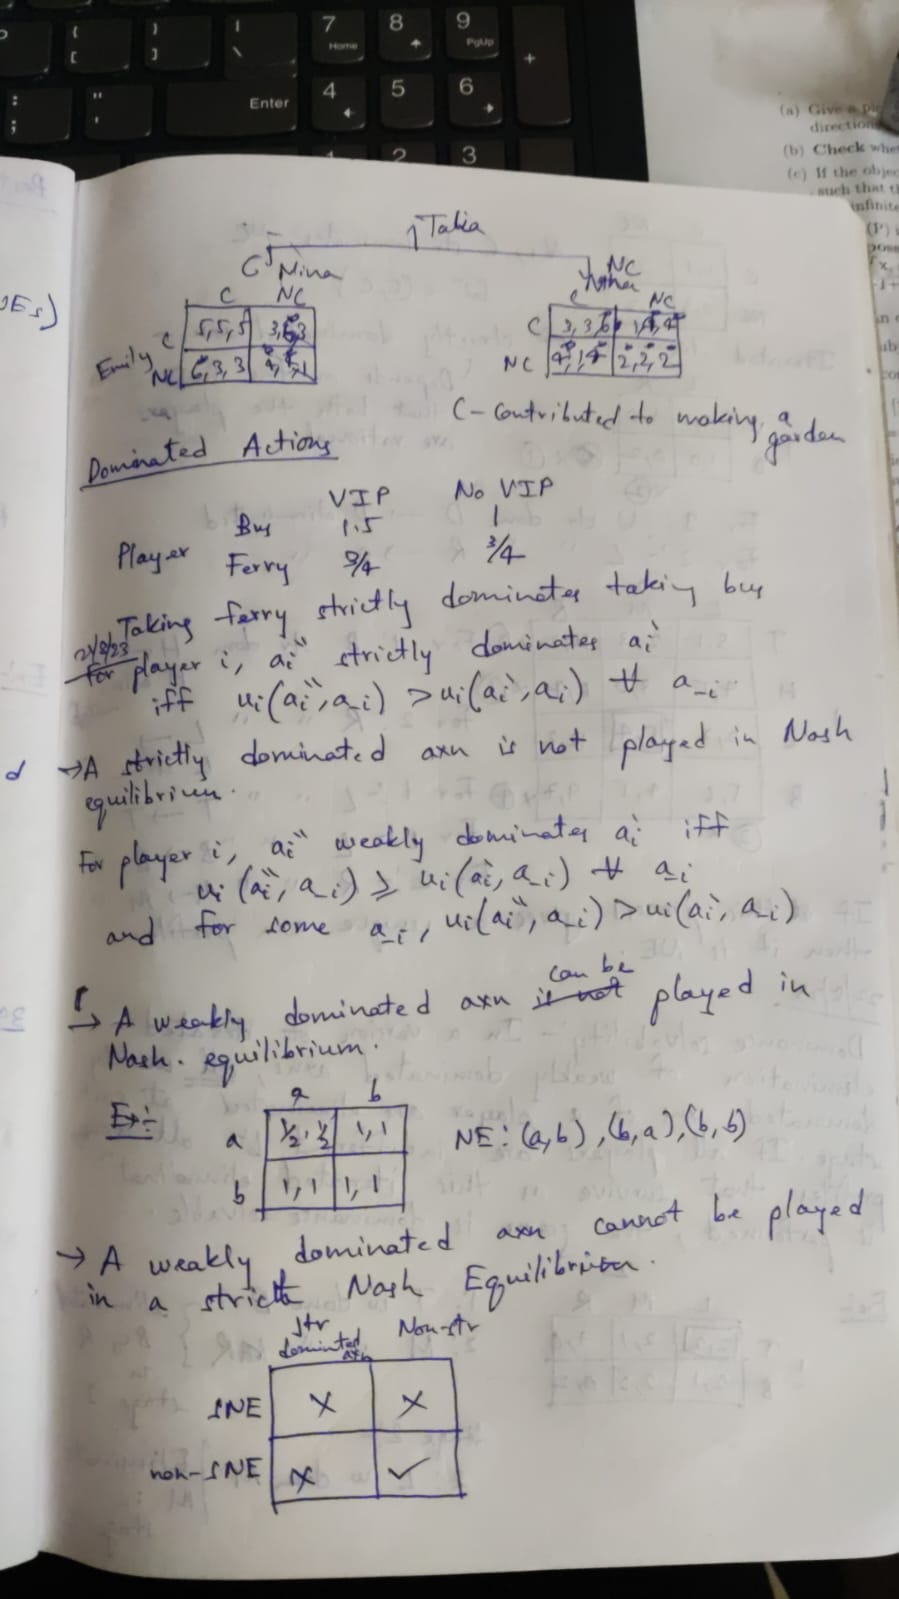 7 8 9
Home PgUp
Enter 4 5 6
+
2 3
(a) Give a
direction
(b) Check whe
(c) If the objec
such that t
infinite
Talia
C Nina NC
C NC C NC
Emily C 5,5,5 C 3,3,6
NC 6,3,3 NC 2,2,2
C - Contributed to making a garden
Dominated Actions
VIP No VIP
Player Bus 1.5 1
Ferry 3/4
Taking ferry strictly dominates taking bus
21/8/23
For player i, ai'' strictly dominates ai'
iff ui(ai'', a-i) > ui(ai', a-i) ∀ a-i
→ A strictly dominated axn is not played in Nash
equilibrium.
For player i, ai'' weakly dominates ai' iff
ui(ai'', a-i) ≥ ui(ai', a-i) ∀ a-i
and for some a-i, ui(ai'', a-i) > ui(ai', a-i)
→ A weakly dominated axn can be played in
Nash equilibrium.
a b
Ex:- a ½,½ 1,1 NE: (a,b), (b,a), (b,b)
b 1,1 1,1
→ A weakly dominated axn cannot be played
in a strict Nash Equilibrium.
Str dominted axn Non-str
SNE × ×
non-SNE × ✓